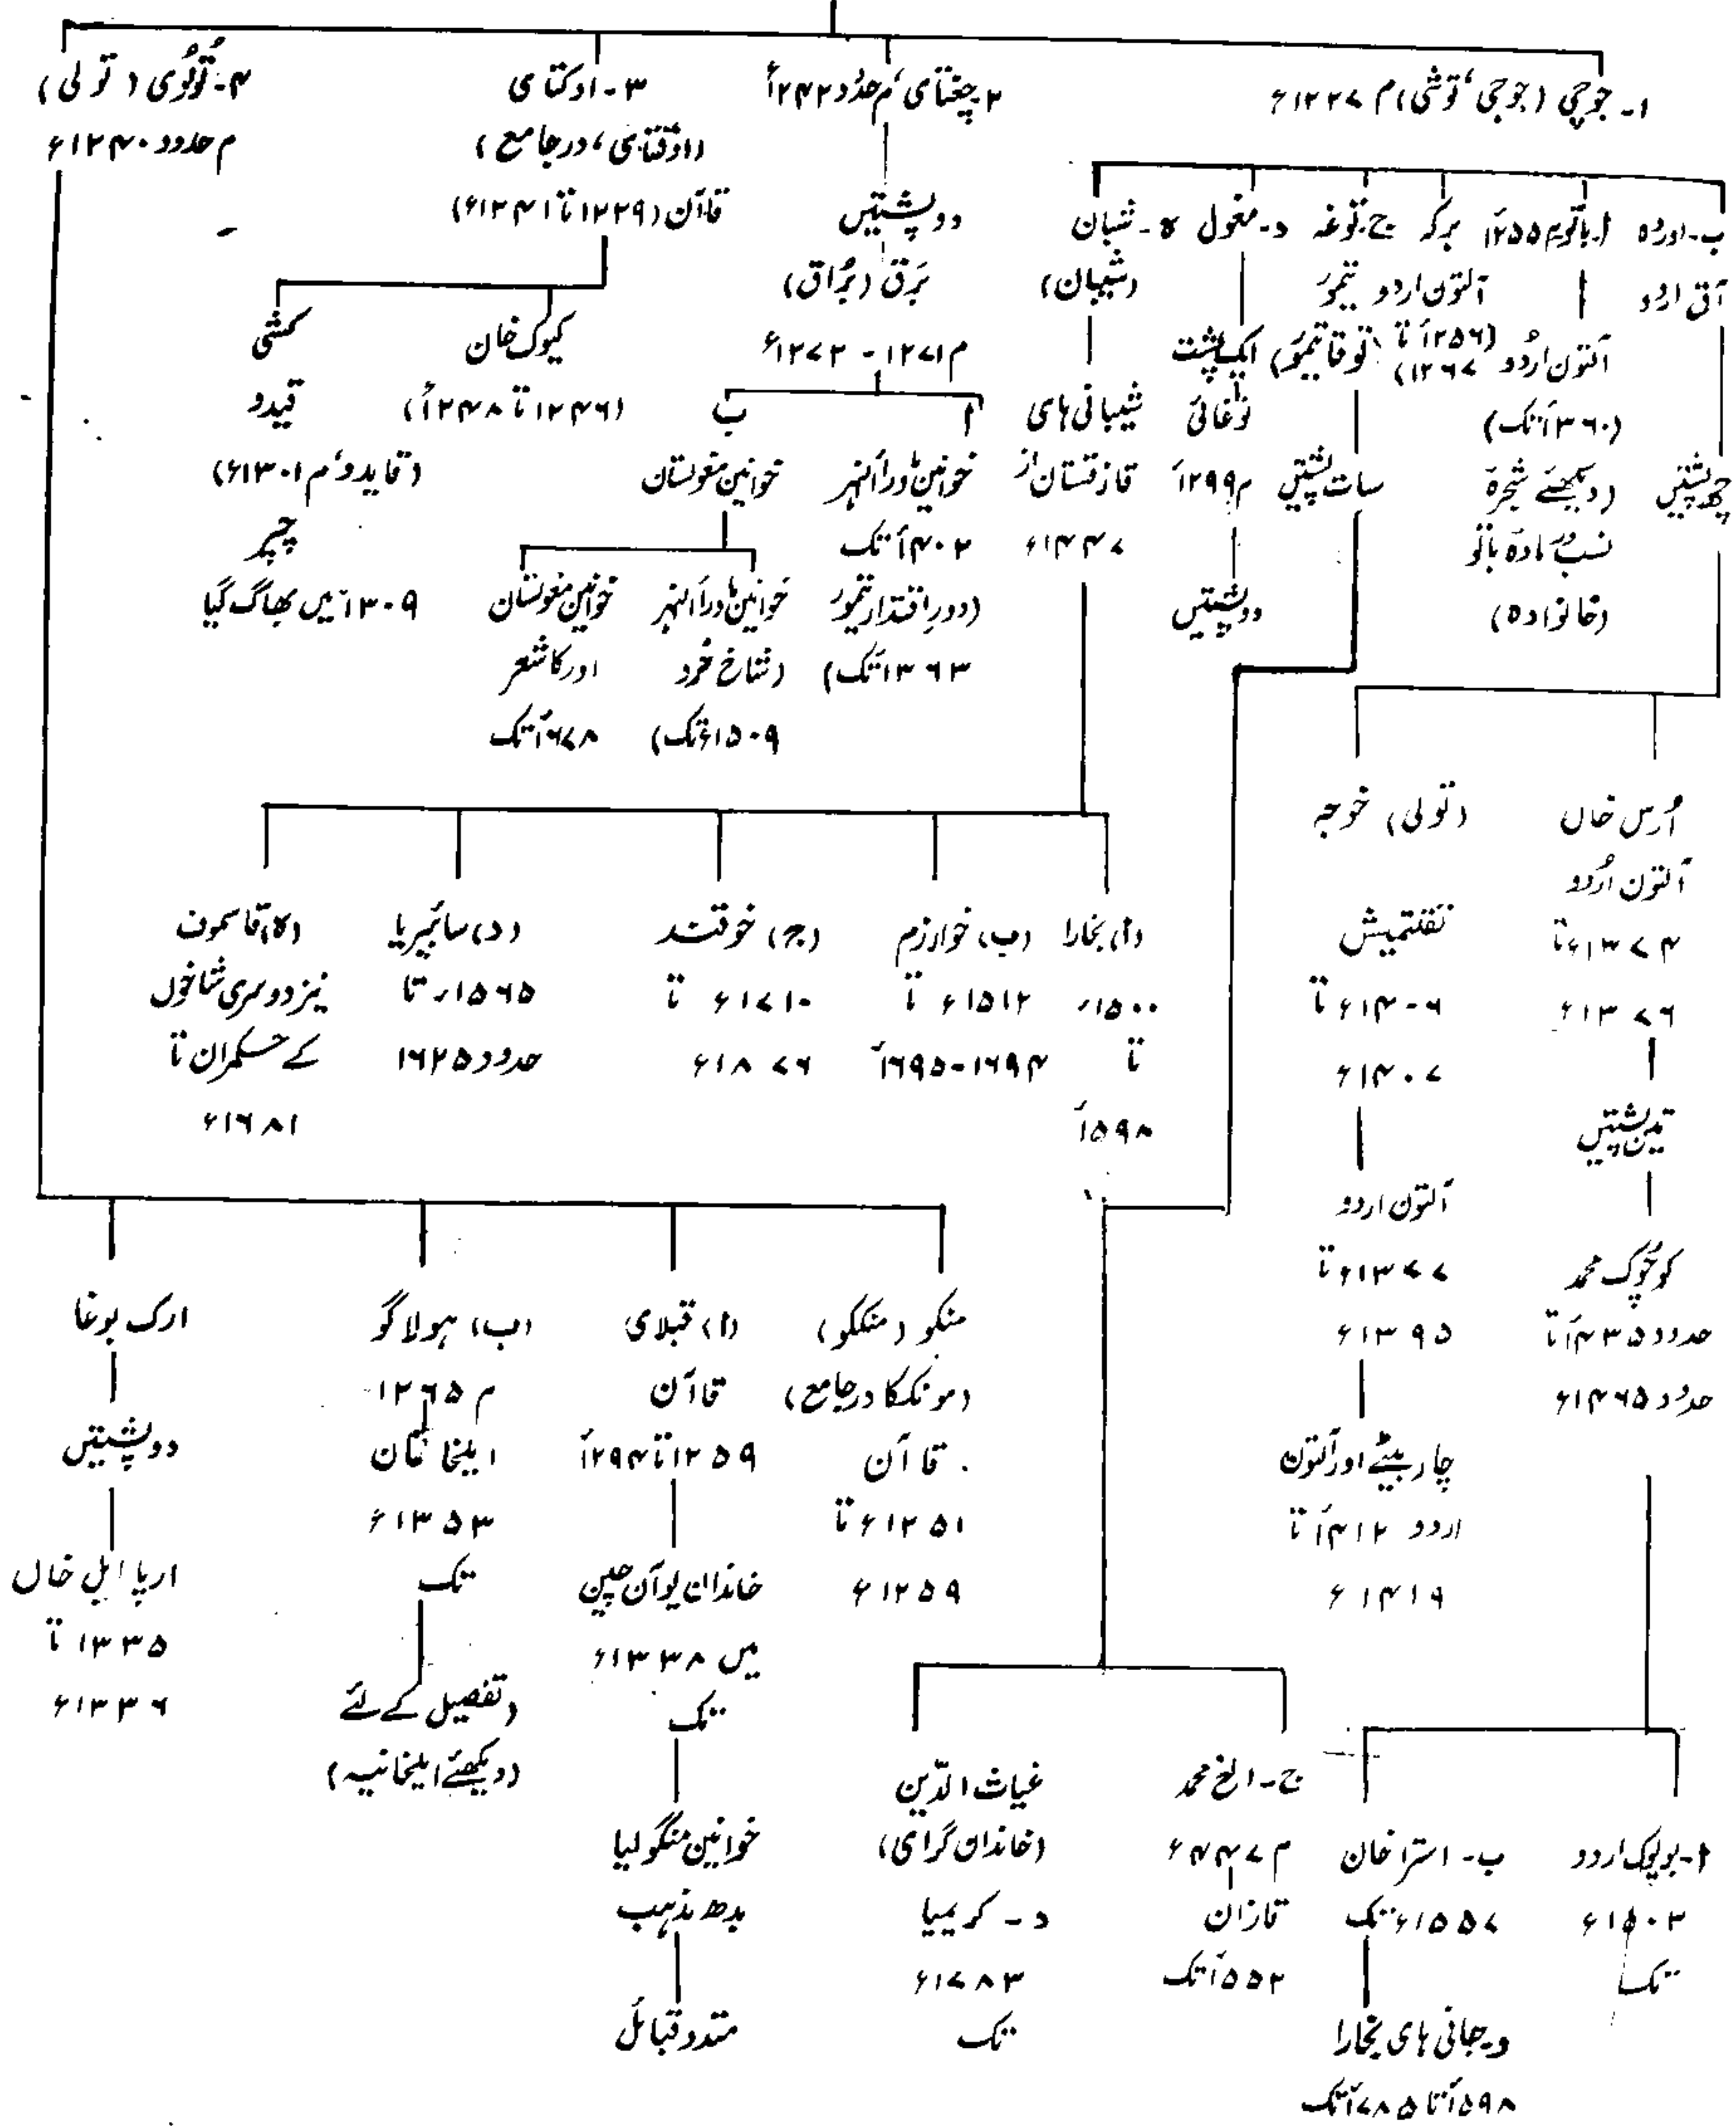 ۱۔ جوچی (جوجی، توشی) م ۱۲۲۷ء
۲۔ چغتای، م حدود ۱۲۴۲ء
۳۔ اوکتای
(اوقتای، در جامع)
قاآن (۱۲۲۹ تا ۱۲۴۱ء)
۴۔ تُولُوی (تولی)
م حدود ۱۲۴۰ء
ب۔ اورده
آق اردو
چھ پشتیں
ا۔ باتو م ۱۲۵۵ء
آلتون اُردو
(۱۳۶۰ء تک)
(دیکھئے شجرۂ
نسب مادہ باتو
خانوادہ)
برکہ
آلتون اردو
(۱۲۵۶ء تا
۱۲۶۷)
ج۔ توغہ
تیمور
(توقا تیمور)
سات پشتیں
د۔ مغول
ایک پشت
نوغائی
م ۱۲۹۹ء
دو پشتیں
ہ۔ شیبان
(شیبان)
شیبانی ہای
قازقستان از
۱۴۴۷ء
دو پشتیں
بَرَق (بُراق)
م ۱۲۷۱ - ۱۲۷۲ء
ا
خوانین ماوراءالنہر
۱۴۰۲ء تک
(دورِ اقتدار تیمور
۱۳۶۳ء تک)
ب
خوانین مغولستان
خوانین ماوراءالنہر
(شاخ خُرد
۱۵۰۹ء تک)
خوانین مغولستان
اور کاشغر
۱۶۷۸ء تک
کیوک خان
(۱۲۴۶ تا ۱۲۴۸ء)
کشی
قیدو
(قایدو، م ۱۳۰۱ء)
چپر
۱۳۰۹ء میں بھاگ گیا
اُرس خاں
آلتون اُردو
۱۳۷۴ء تا
۱۳۷۶ء
تین پشتیں
کوچوک محمد
حدود ۱۴۳۵ء تا
حدود ۱۴۶۵ء
(تولی) خوجہ
تقتمیش
۱۴۰۶ء تا
۱۴۰۷ء
آلتون اردو
۱۳۷۷ء تا
۱۳۹۵ء
چار بیٹے اور آلتون
اردو ۱۴۱۲ء تا
۱۴۱۹ء
(ا) بخارا
۱۵۰۰ء
تا
۱۵۹۸ء
(ب) خوارزم
۱۵۱۲ء تا
۱۶۹۴-۱۶۹۵ء
(ج) خوقند
۱۷۱۰ء تا
۱۸۷۶ء
(د) سائبیریا
۱۵۶۵ء تا
حدود ۱۶۲۵
(ہ) قاسموف
نیز دوسری شاخوں
کے حکمران تا
۱۶۸۱ء
منکو (منککو)
(مونککا در جامع)
قاآن
۱۲۵۱ء تا
۱۲۵۹ء
(ا) قبلای
قاآن
۱۲۵۹ تا ۱۲۹۴ء
خاندان یوآن چین
میں ۱۳۳۸ء
تک
خوانین منگولیا
بدھ مذہب
متعدد قبائل
(ب) ہولاگو
م ۱۲۶۵
ایلخانان
۱۳۵۳ء
تک
(تفصیل کے لئے
دیکھئے ایلخانیہ)
ارک بوغا
دو پشتیں
ارپا ایل خاں
۱۳۳۵ تا
۱۳۳۶ء
ا۔ بویوک اردو
۱۵۰۳ء
تک
ب۔ استراخان
۱۵۵۷ء تک
و۔ جانی ہای بخارا
۱۵۹۸ء تا ۱۷۸۵ء تک
ج۔ الغ محمد
م ۴۴۷ء
قازان
۱۵۵۲ء تک
غیاث الدّین
(خاندان گرای)
د۔ کریمیا
۱۷۸۳ء
تک